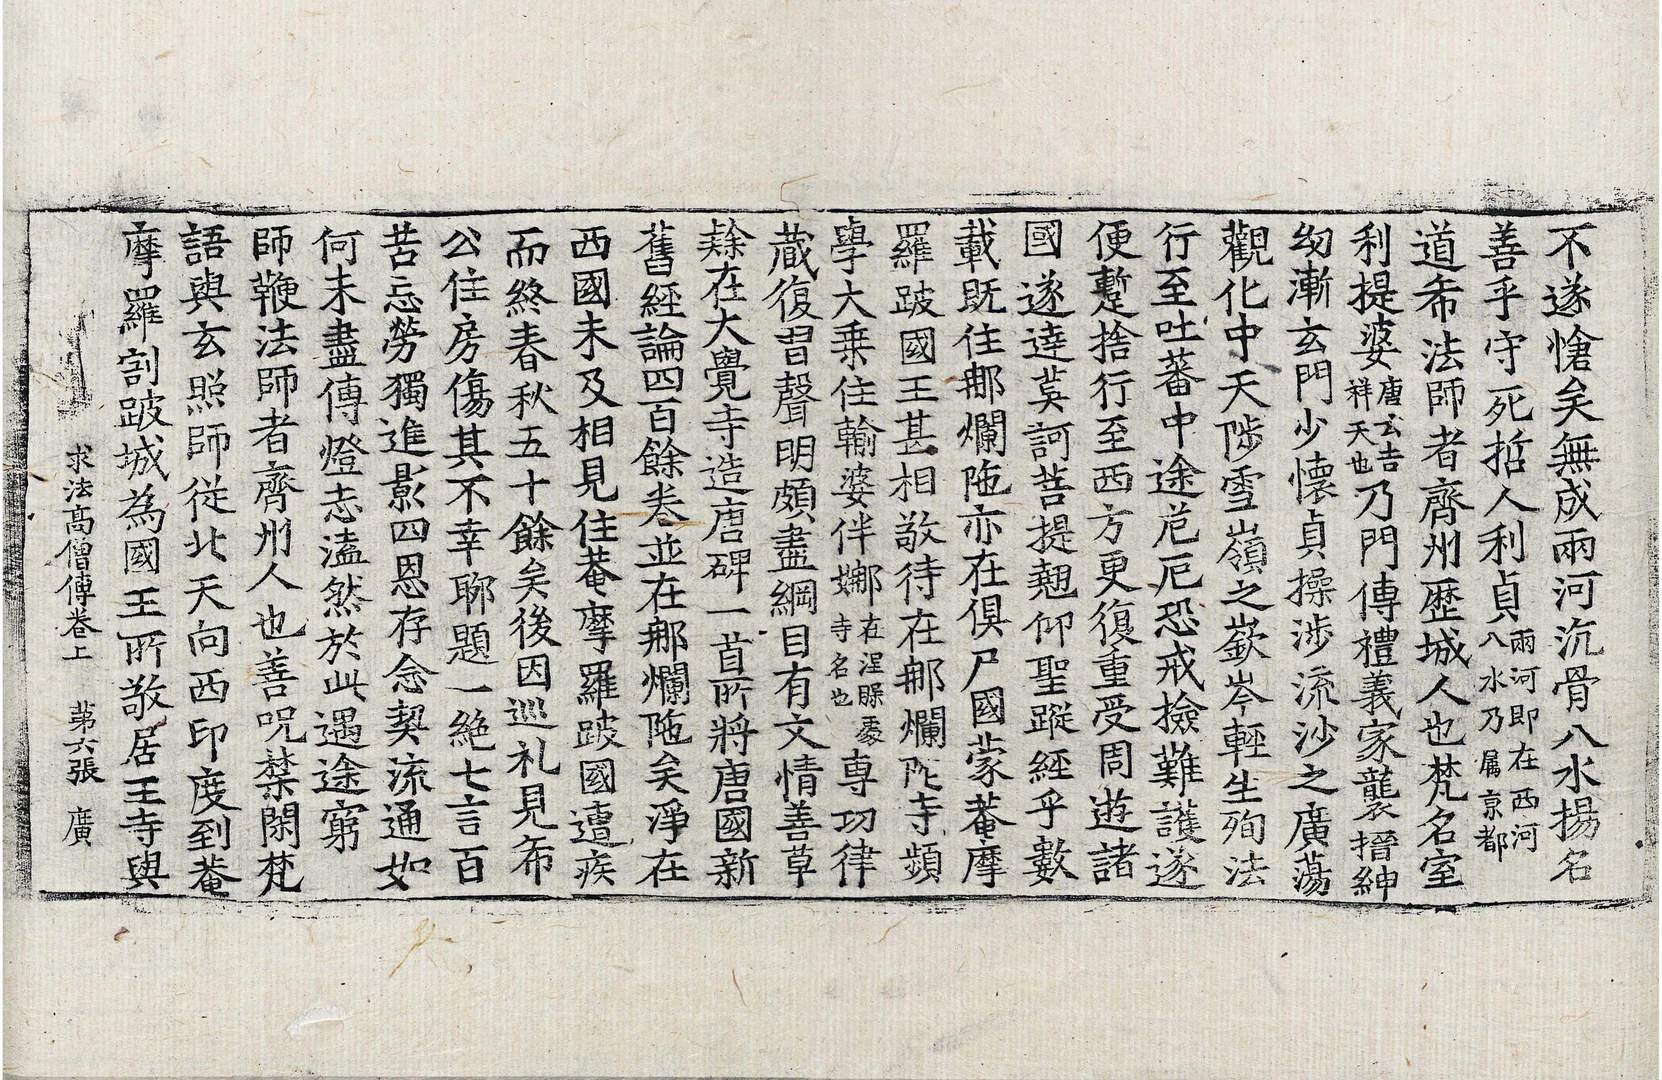 不遂愴矣無成兩河沉骨八水揚名
善乎守死哲人利貞兩河即在西河八水乃属京都
道希法師者齊州歷城人也梵名室
利提婆唐云吉祥天也乃門傳禮義家襲搢紳
幼漸玄門少懷貞操涉流沙之廣蕩
觀化中天陟雪嶺之嶔岑輕生殉法
行至吐蕃中途危厄恐戒撿難護遂
便蹔捨行至西方更復重受周遊諸
國遂達莫訶菩提翹仰聖蹤經乎數
載既住那爛陁亦在俱尸國蒙菴摩
羅跛國王甚相敬待在那爛陀寺頻
學大乗住輸婆伴娜在涅槃處寺名也専功律
蔵復習聲明頗盡綱目有文情善草
𨽻在大覺寺造唐碑一首所將唐國新
舊經論四百餘卷並在那爛陁矣淨在
西國未及相見住菴摩羅跛國遭疾
而終春秋五十餘矣後因巡礼見希
公住房傷其不幸聊題一絶七言百
苦忘勞獨進影四恩存念契流通如
何未盡傳燈志溘然於此遇途窮
師鞭法師者齊州人也善呪禁閑梵
語與玄照師從北天向西印度到菴
摩羅割跛城為國王所敬居王寺與
求法高僧傳卷上　第六張　廣